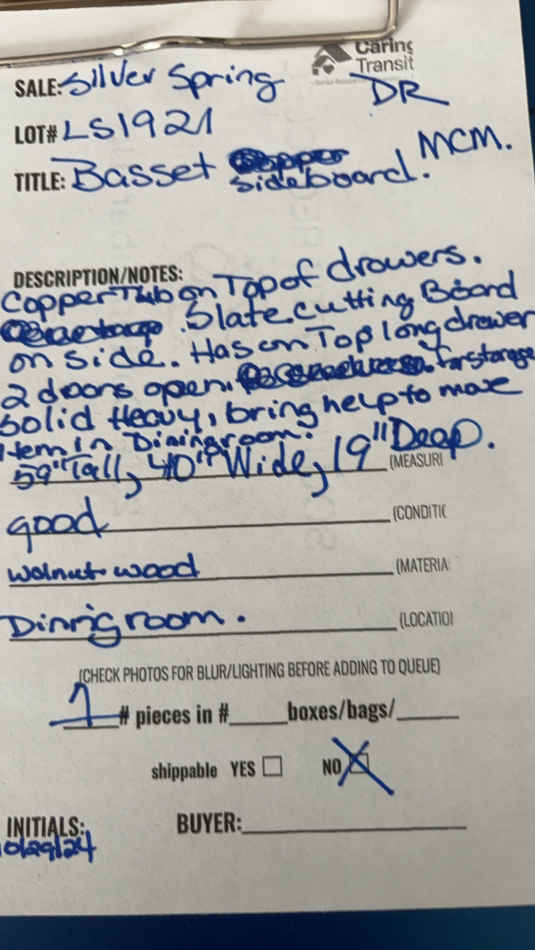 Caring
Transit
SALE: Silver Spring DR
LOT# LS1921
TITLE: Basset sideboard. MCM.
DESCRIPTION/NOTES:
Copper Tub on Top of drawers.
Slate cutting Board
on side. Has on Top long drawer
2 doors open. for storage
Solid Heavy, bring help to move
Item in Dining room.
59" Tall, 40" Wide, 19" Deep. (MEASURI
good (CONDITIO
Walnut wood (MATERIA
Dining room. (LOCATIO
(CHECK PHOTOS FOR BLUR/LIGHTING BEFORE ADDING TO QUEUE)
1 # pieces in # boxes/bags/
shippable YES NO X
INITIALS: BUYER:
10/29/24